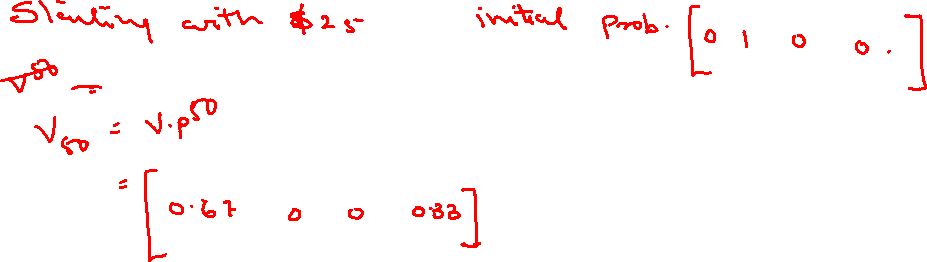 Starting with $25 initial Prob. [0 1 0 0.]
V50 = V.P50
= [0.67 0 0 0.33]